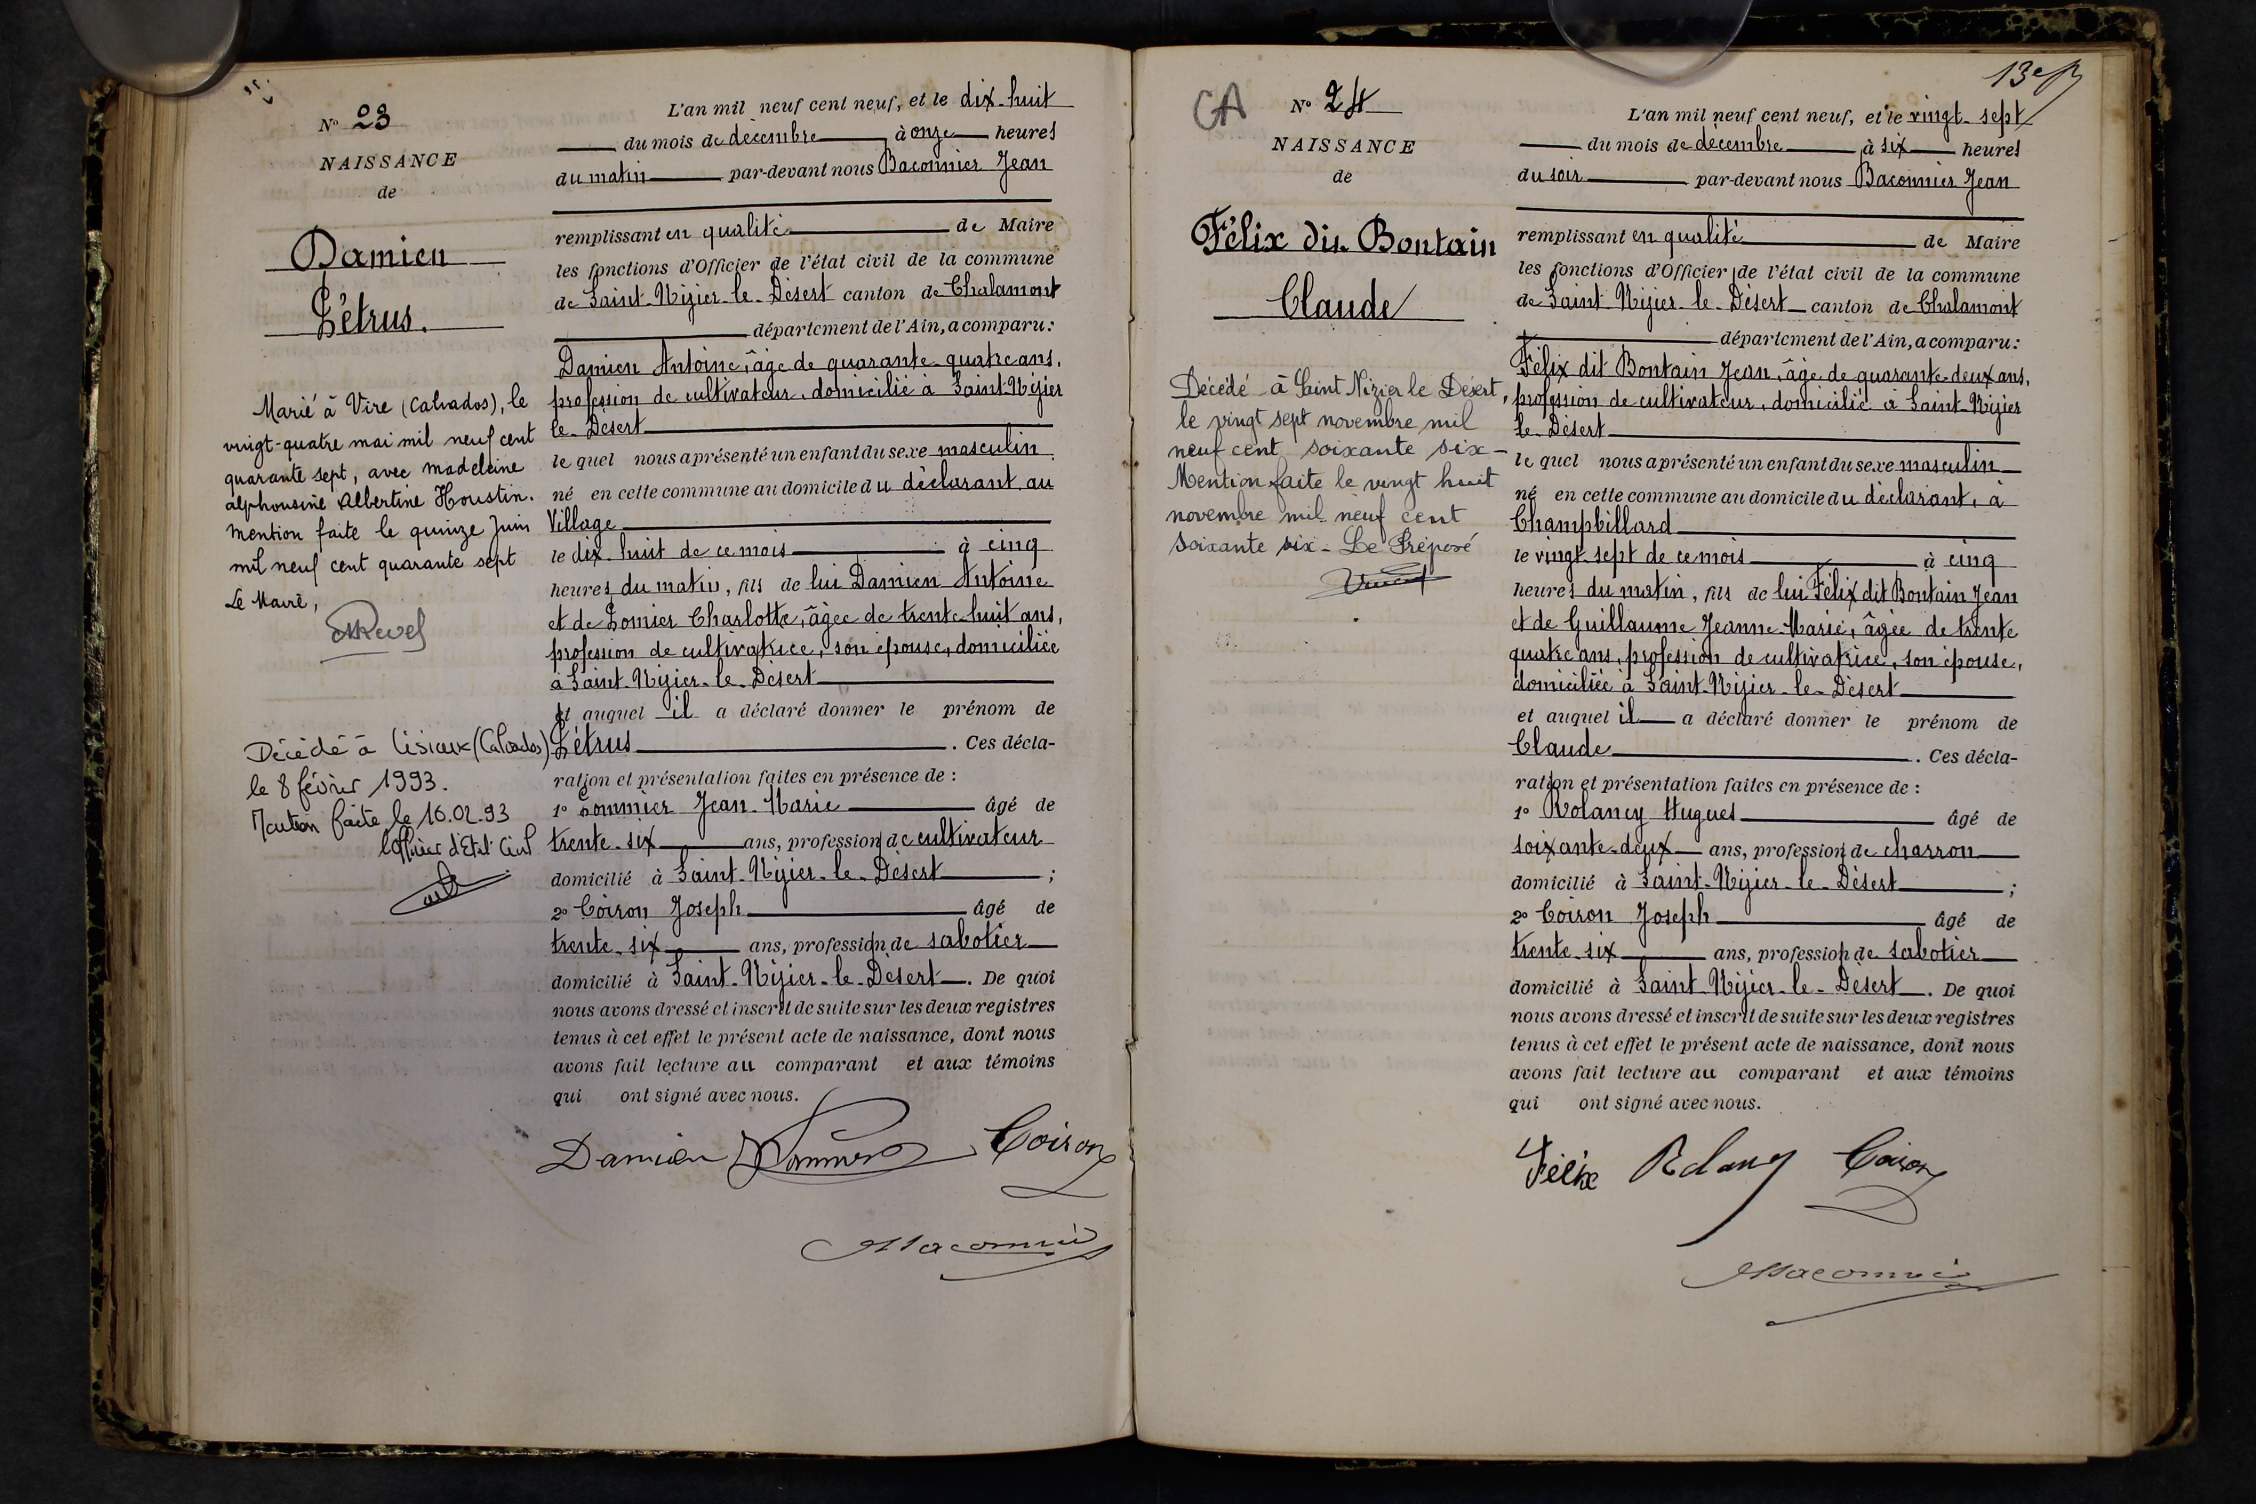 N° 23
NAISSANCE
de
Damien
Pétrus.
Marié à Vire (Calvados), le
vingt-quatre mai mil neuf cent
quarante sept, avec Madeleine
Alphonsine Albertine Houstin.
Mention faite le quinze Juin
mil neuf cent quarante sept
Le Maire,
Décédé à Lisieux (Calvados)
le 8 février 1993.
Mention faite le 16.02.93
l'officier d'Etat Civil
L'an mil neuf cent neuf, et le dix-huit
du mois de décembre à onze heures
du matin par-devant nous Baconnier Jean
remplissant en qualité de Maire
les fonctions d'Officier de l'état civil de la commune
de Saint-Nizier-le-Désert canton de Chalamont
département de l'Ain, a comparu:
Damien Antoine, âgé de quarante-quatre ans,
profession de cultivateur, domicilié à Saint-Nizier
le-Désert
le quel nous a présenté un enfant du sexe masculin
né en cette commune au domicile du déclarant, au
Village
le dix-huit de ce mois à cinq
heures du matin, fils de lui Damien Antoine
et de Pomier Charlotte, âgée de trente-huit ans,
profession de cultivatrice, son épouse, domiciliée
à Saint-Nizier-le-Désert
et auquel il a déclaré donner le prénom de
Pétrus . Ces décla-
ration et présentation faites en présence de :
1° Pommier Jean-Marie âgé de
trente-six ans, profession de cultivateur
domicilié à Saint-Nizier-le-Désert ;
2° Coiron Joseph âgé de
trente-six ans, profession de sabotier
domicilié à Saint-Nizier-le-Désert . De quoi
nous avons dressé et inscrit de suite sur les deux registres
tenus à cet effet le présent acte de naissance, dont nous
avons fait lecture au comparant et aux témoins
qui ont signé avec nous.
Damien Pommier Coiron
Baconnier
13e f
CA
N° 24
NAISSANCE
de
Félix dit Bontain
Claude
Décédé à Saint Nizier le Désert,
le vingt sept novembre mil
neuf cent soixante six -
Mention faite le vingt huit
novembre mil neuf cent
soixante six - Le Préposé
L'an mil neuf cent neuf, et le vingt-sept
du mois de décembre à six heures
du soir par-devant nous Baconnier Jean
remplissant en qualité de Maire
les fonctions d'Officier de l'état civil de la commune
de Saint-Nizier-le-Désert canton de Chalamont
département de l'Ain, a comparu:
Félix dit Bontain Jean, âgé de quarante-deux ans,
profession de cultivateur, domicilié à Saint-Nizier
le-Désert
le quel nous a présenté un enfant du sexe masculin
né en cette commune au domicile du déclarant, à
Champbillard
le vingt-sept de ce mois à cinq
heures du matin, fils de lui Félix dit Bontain Jean
et de Guillaume Jeanne-Marie, âgée de trente
quatre ans, profession de cultivatrice, son épouse,
domiciliée à Saint-Nizier-le-Désert
et auquel il a déclaré donner le prénom de
Claude . Ces décla-
ration et présentation faites en présence de :
1° Rolancy Hugues âgé de
soixante-deux ans, profession de charron
domicilié à Saint-Nizier-le-Désert ;
2° Coiron Joseph âgé de
trente-six ans, profession de sabotier
domicilié à Saint-Nizier-le-Désert . De quoi
nous avons dressé et inscrit de suite sur les deux registres
tenus à cet effet le présent acte de naissance, dont nous
avons fait lecture au comparant et aux témoins
qui ont signé avec nous.
Félix Rolancy Coiron
Baconnier